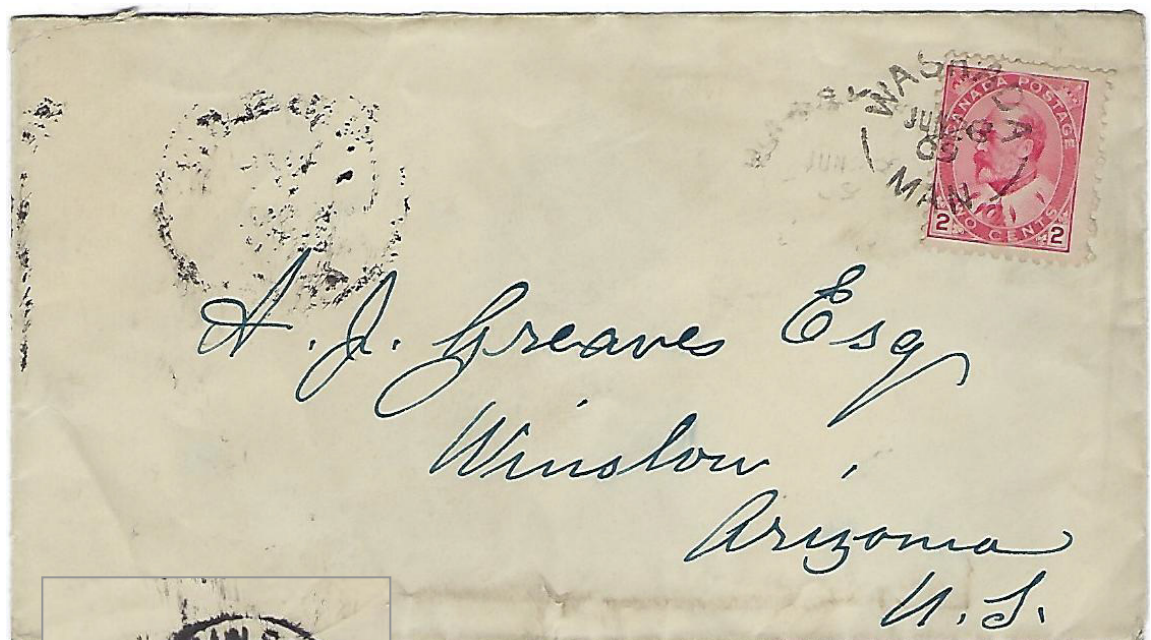 WASKADA
JUN 8
03
MAN
CANADA POSTAGE
2 TWO CENTS 2
A. J. Greaves Esq
Winslow,
Arizona
U.S.